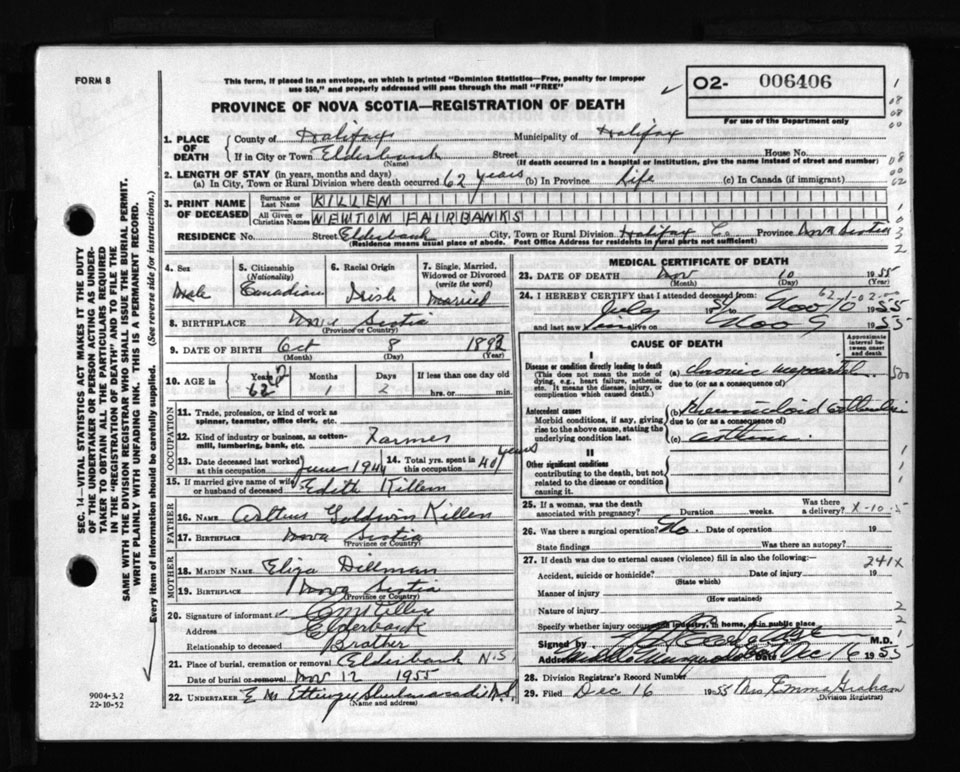 FORM 8
This form, if placed in an envelope, on which is printed "Dominion Statistics—Free, penalty for improper
use $50," and properly addressed will pass through the mail "FREE"
O2- 006406
For use of the Department only
PROVINCE OF NOVA SCOTIA—REGISTRATION OF DEATH
1. PLACE OF DEATH County of Halifax Municipality of Halifax
If in City or Town Elderbank Street House No.
(Name) (If death occurred in a hospital or institution, give the name instead of street and number)
2. LENGTH OF STAY (in years, months and days)
(a) In City, Town or Rural Division where death occurred 62 years (b) In Province Life (c) In Canada (if immigrant)
3. PRINT NAME OF DECEASED Surname or Last Name KILLEN
All Given or Christian Names NEWTON FAIRBANKS
RESIDENCE No. Street Elderbank City, Town or Rural Division Halifax Co. Province Nova Scotia
(Residence means usual place of abode. Post Office Address for residents in rural parts not sufficient)
4. Sex Male
5. Citizenship (Nationality) Canadian
6. Racial Origin Irish
7. Single, Married, Widowed or Divorced (write the word) Married
8. BIRTHPLACE Nova Scotia
(Province or Country)
9. DATE OF BIRTH Oct 8 1893
(Month) (Day) (Year)
10. AGE in Years 62 Months 1 Days 2 If less than one day old hrs. or min.
OCCUPATION
11. Trade, profession, or kind of work as spinner, teamster, office clerk, etc.
12. Kind of industry or business, as cotton-mill, lumbering, bank, etc. Farmer
13. Date deceased last worked at this occupation June 1944
14. Total yrs. spent in this occupation 40 years
15. If married give name of wife or husband of deceased Edith Killen
FATHER
16. NAME Goldwin Killen
17. BIRTHPLACE Nova Scotia
(Province or Country)
MOTHER
18. MAIDEN NAME Eliza Dillman
19. BIRTHPLACE Nova Scotia
(Province or Country)
20. Signature of informant
Address Elderbank
Relationship to deceased Brother
21. Place of burial, cremation or removal Elderbank N.S.
Date of burial or removal Nov 12 1955
22. UNDERTAKER
(Name and address)
MEDICAL CERTIFICATE OF DEATH
23. DATE OF DEATH Nov 10 1955
(Month) (Day) (Year)
24. I HEREBY CERTIFY that I attended deceased from: July to Nov 10 1955
and last saw alive on Nov 9 1955
CAUSE OF DEATH
Approximate interval between onset and death
I
Disease or condition directly leading to death
(This does not mean the mode of dying, e.g., heart failure, asthenia, etc. It means the disease, injury, or complication which caused death.)
(a) chronic
due to (or as a consequence of)
Antecedent causes
Morbid conditions, if any, giving rise to the above cause, stating the underlying condition last.
(b)
due to (or as a consequence of)
(c) asthma
II
Other significant conditions
contributing to the death, but not related to the disease or condition causing it.
25. If a woman, was the death associated with pregnancy? Duration weeks. Was there a delivery? X-10-5
26. Was there a surgical operation? No. Date of operation 19
State findings Was there an autopsy?
27. If death was due to external causes (violence) fill in also the following:— 241X
Accident, suicide or homicide? Date of injury 19
(State which)
Manner of injury
(How sustained)
Nature of injury
Specify whether injury occurred in industry, in home, or in public place
Signed by M.D.
Address Date Dec 16 1955
28. Division Registrar's Record Number
29. Filed Dec 16 1955 Mrs Emma Graham
(Division Registrar)
SEC. 14—VITAL STATISTICS ACT MAKES IT THE DUTY
OF THE UNDERTAKER OR PERSON ACTING AS UNDER-
TAKER TO OBTAIN ALL THE PARTICULARS REQUIRED
IN THE "REGISTRATION OF DEATH" AND TO FILE THE
SAME WITH THE DIVISION REGISTRAR WHO SHALL ISSUE THE BURIAL PERMIT.
WRITE PLAINLY WITH UNFADING INK. THIS IS A PERMANENT RECORD.
Every item of Information should be carefully supplied. (See reverse side for instructions.)
9004-3.2
22-10-52